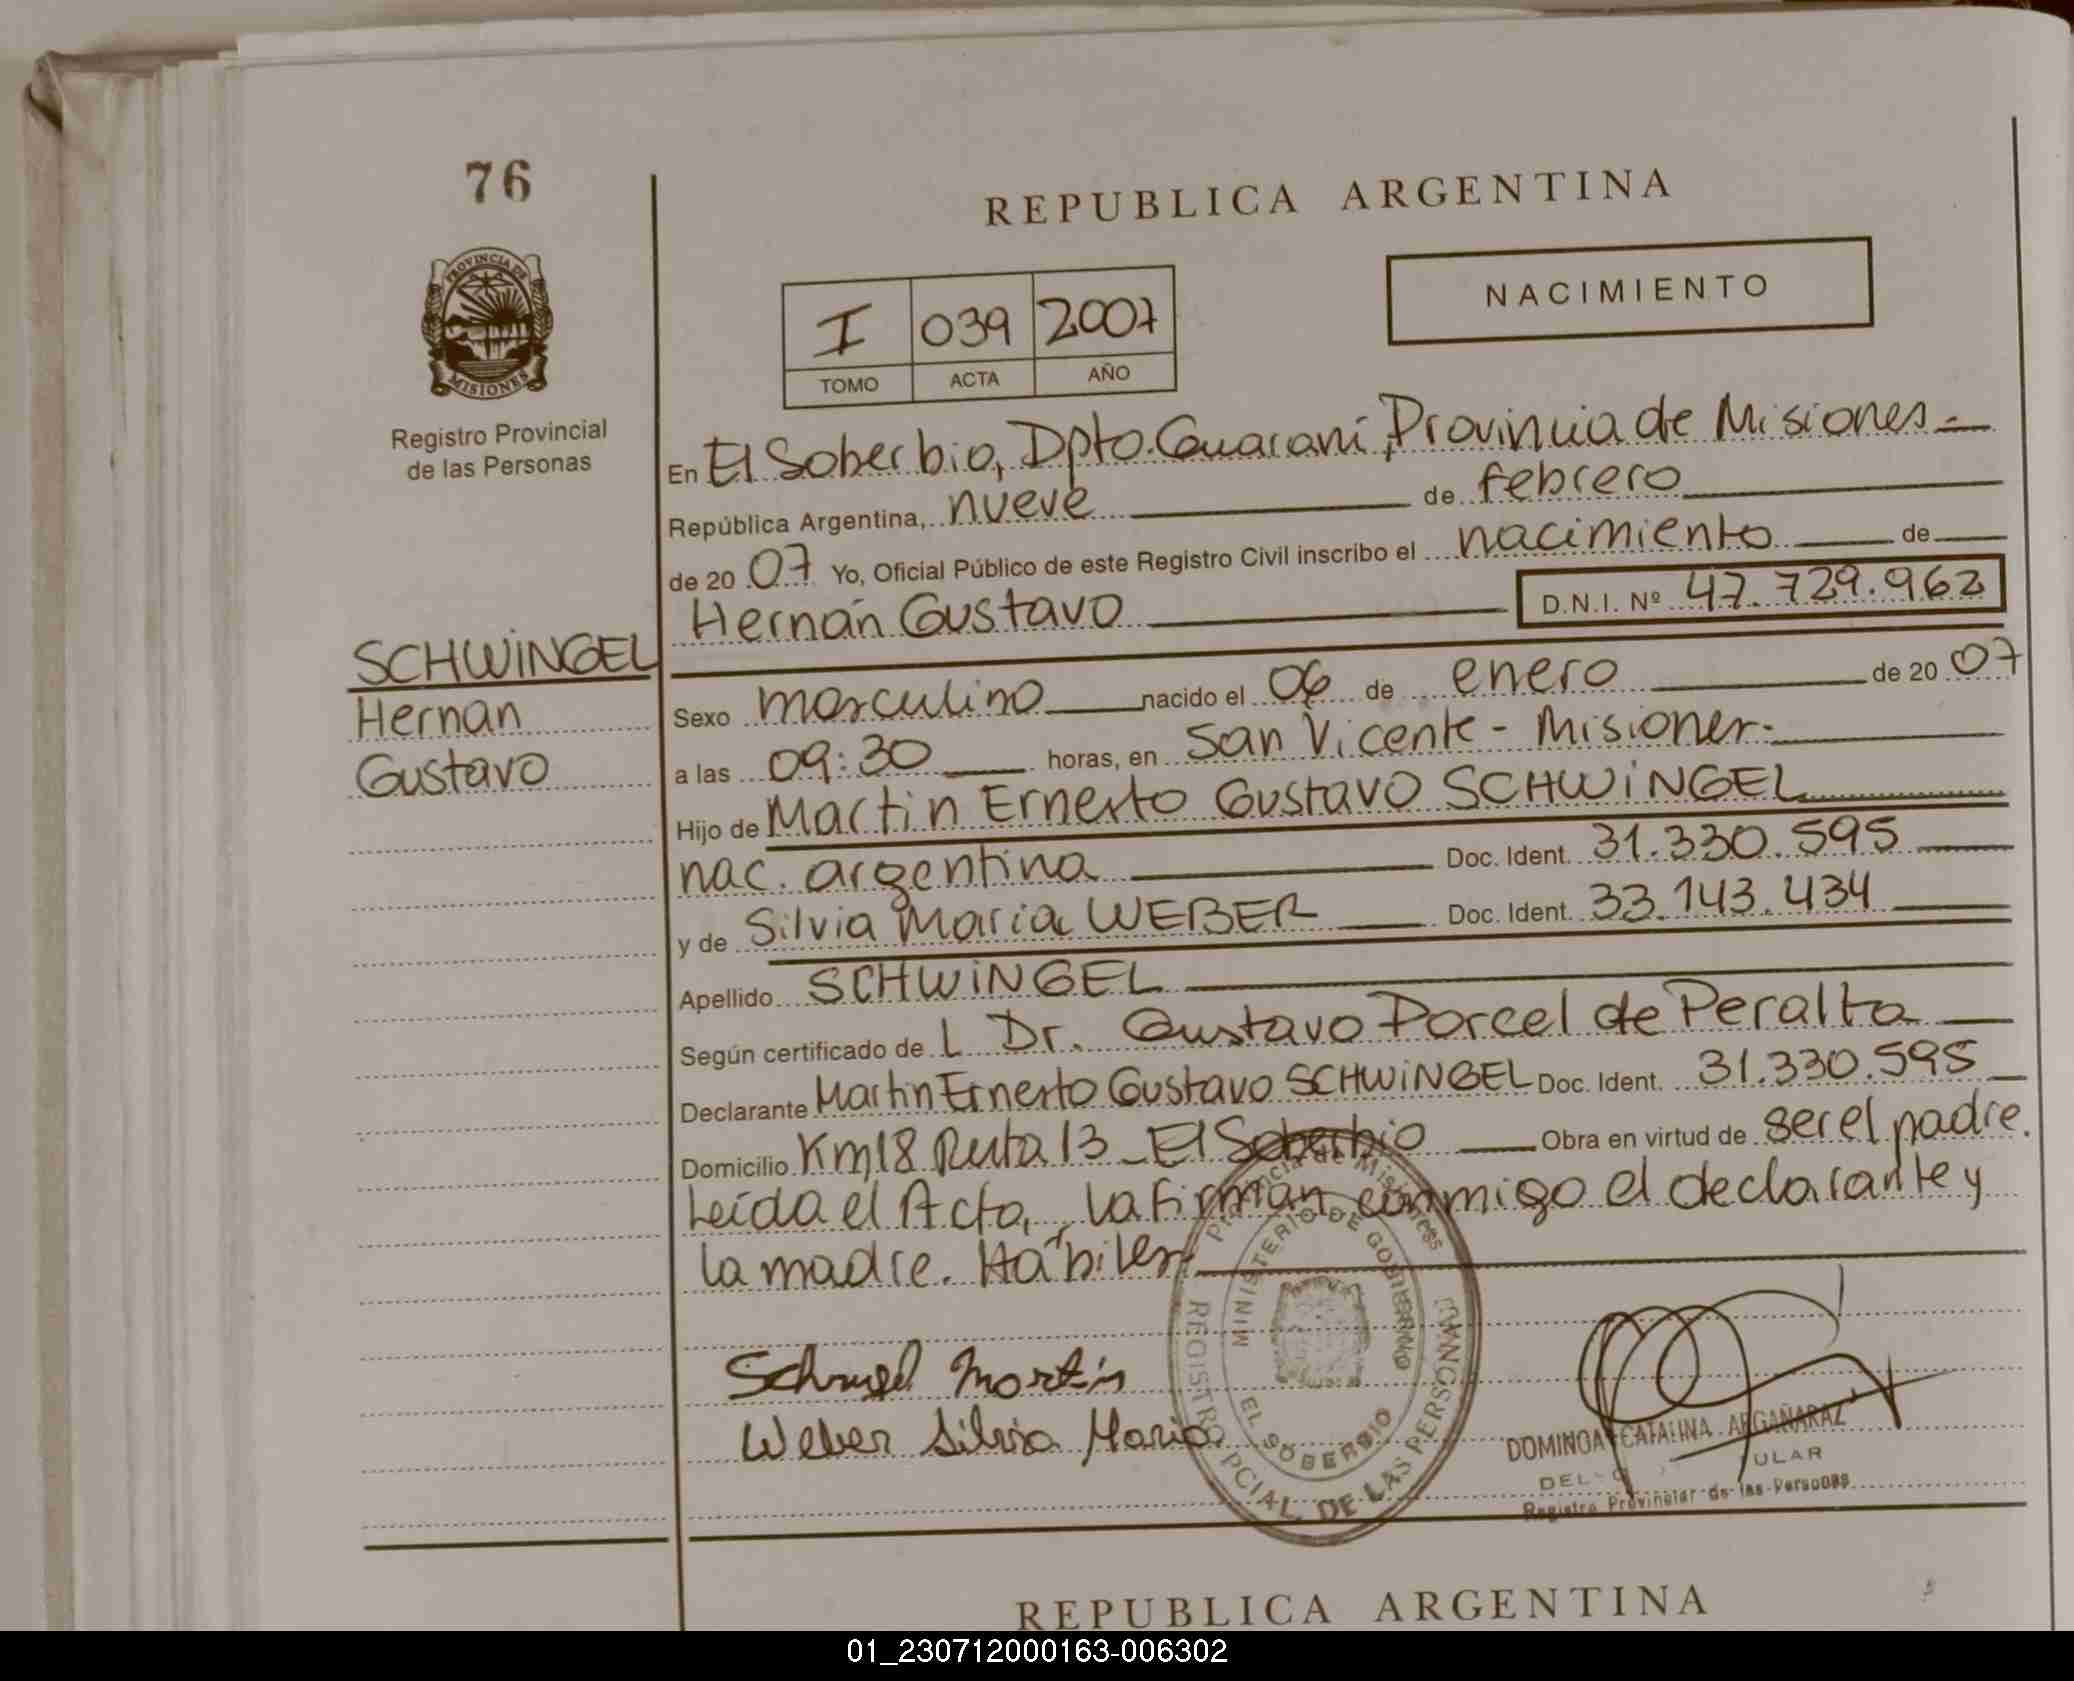 76
REPUBLICA ARGENTINA
PROVINCIA DE
MISIONES
Registro Provincial
de las Personas
NACIMIENTO
I 039 2007
TOMO ACTA AÑO
En El Soberbio, Dpto. Guaraní, Provincia de Misiones.-
República Argentina, nueve de febrero
de 20 07 Yo, Oficial Público de este Registro Civil inscribo el nacimiento de
Hernán Gustavo D.N.I. Nº 47.729.962
SCHWiNGEL
Hernan
Gustavo
Sexo masculino nacido el 06 de enero de 20 07
a las 09:30 horas, en San Vicente - Misiones.-
Hijo de Martin Ernesto Gustavo SCHWiNGEL
nac. argentina Doc. Ident. 31.330.595
y de Silvia Maria WEBER Doc. Ident. 33.143.434
Apellido SCHWiNGEL
Según certificado de L Dr. Gustavo Porcel de Peralta
Declarante Martin Ernesto Gustavo SCHWiNGEL Doc. Ident. 31.330.595
Domicilio Km18 Ruta 13 - El Soberbio Obra en virtud de ser el padre.
Leída el Acta, la firman conmigo el declarante y
la madre. Hábiles.
Provincia de Misiones
MINISTERIO DE GOBIERNO
EL SOBERBIO
REGISTRO PCIAL. DE LAS PERSONAS
Martin
Weber Silvia Maria
DOMINGA CATALINA ARGAÑARAZ
Registro Provincial de las Personas
REPUBLICA ARGENTINA
01_230712000163-006302